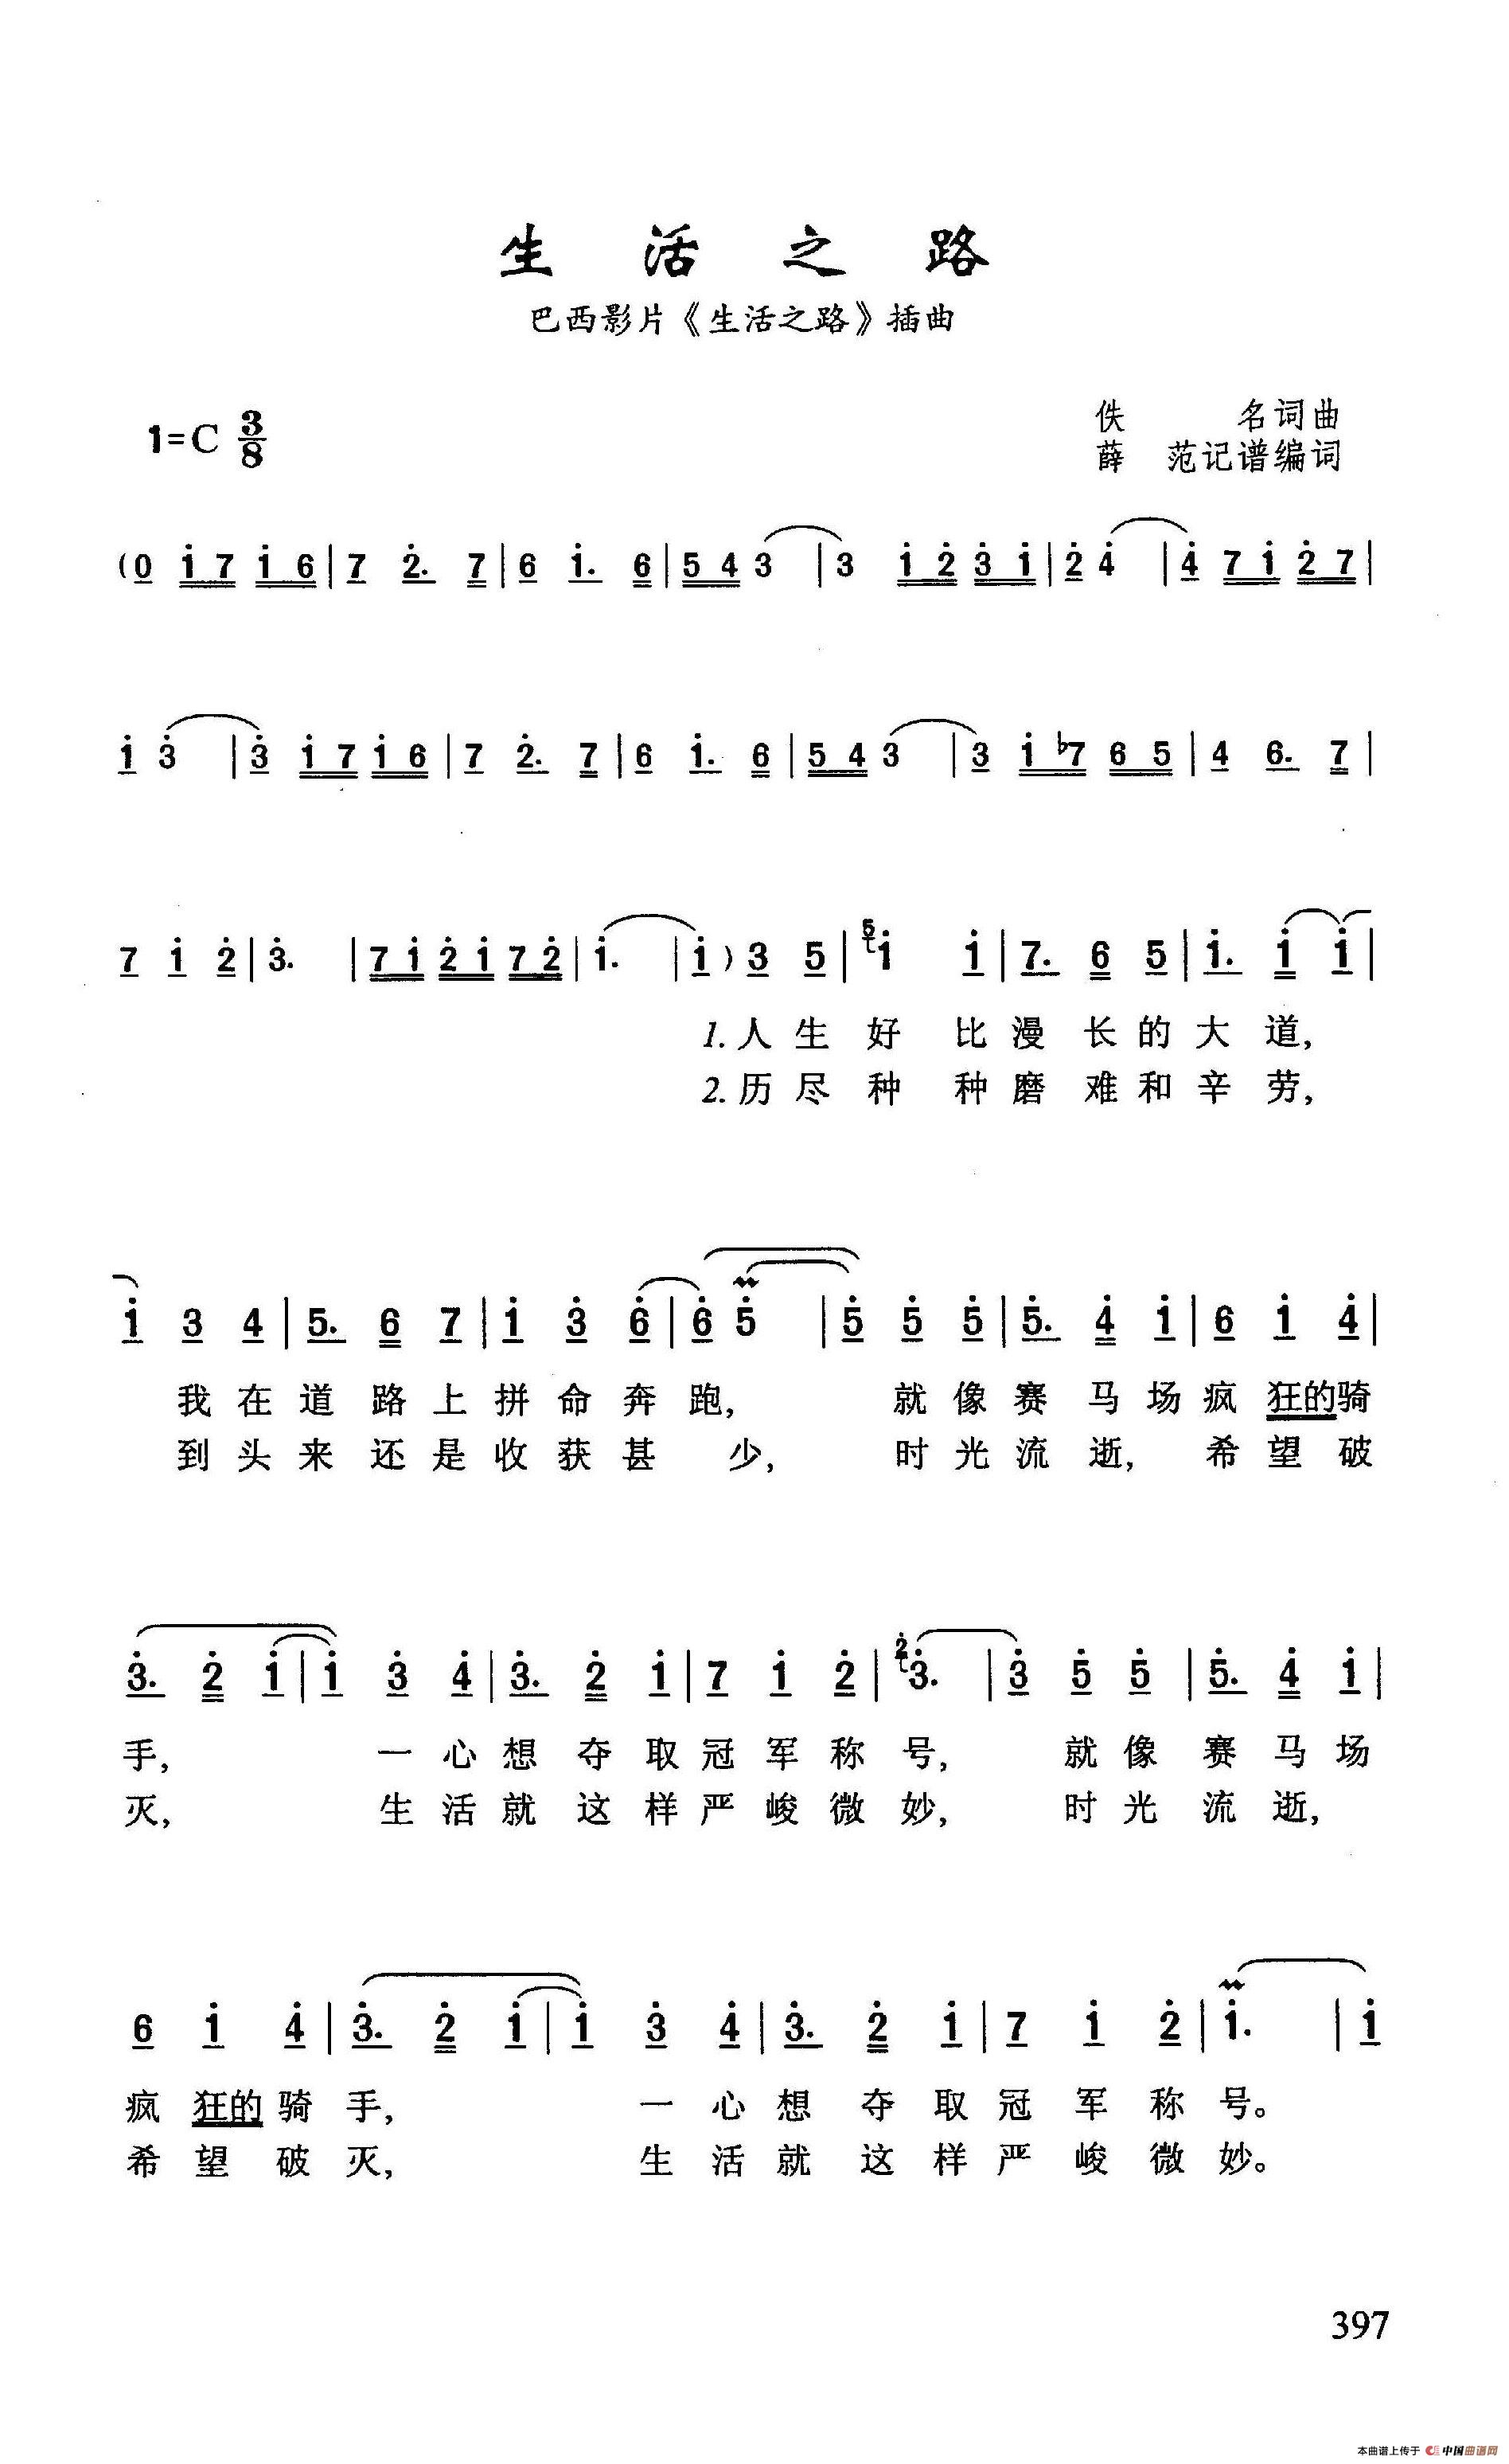 生活之路
巴西影片《生活之路》插曲
1=C 3/8
佚 名词曲
薛 范记谱编词
(0 i 7 i 6 | 7 2̇. 7 | 6 i. 6 | 5 4 3 | 3 i 2̇ 3̇ i | 2̇ 4̇ | 4̇ 7 i 2̇ 7 |
i 3̇ | 3̇ i 7 i 6 | 7 2̇. 7 | 6 i. 6 | 5 4 3 | 3 i ♭7 6 5 | 4 6. 7 |
7 i 2̇ | 3̇. | 7 i 2̇ i 7 2̇ | i. | i ) 3 5 | 5 i i | 7. 6 5 | i. i i |
1.人生好比漫长的大道,
2.历尽种种磨难和辛劳,
i 3 4 | 5. 6 7 | i 3̇ 6̇ | 6̇ 5̇ | 5̇ 5̇ 5̇ | 5̇. 4̇ i | 6 i 4̇ |
我在道路上拼命奔跑, 就像赛马场疯狂的骑
到头来还是收获甚少, 时光流逝, 希望破
3̇. 2̇ i | i 3̇ 4̇ | 3̇. 2̇ i | 7 i 2̇ | 2̇ 3̇. | 3̇ 5̇ 5̇ | 5̇. 4̇ i |
手, 一心想夺取冠军称号, 就像赛马场
灭, 生活就这样严峻微妙, 时光流逝,
6 i 4̇ | 3̇. 2̇ i | i 3̇ 4̇ | 3̇. 2̇ i | 7 i 2̇ | i. | i
疯狂的骑手, 一心想夺取冠军称号。
希望破灭, 生活就这样严峻微妙。
397
本曲谱上传于 中国曲谱网